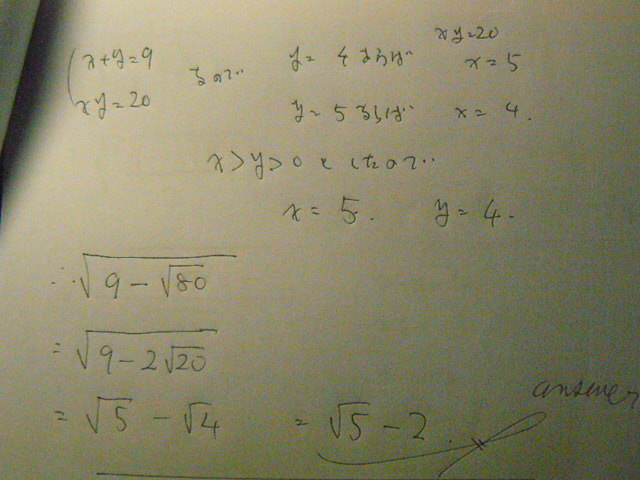 x+y=9 なので y=4ならば xy=20 x=5
xy=20 y=5ならば x=4.
x>y>0としたので
x=5. y=4.
∴√(9-√80)
=√(9-2√20)
=√5-√4 =√5-2.
answer